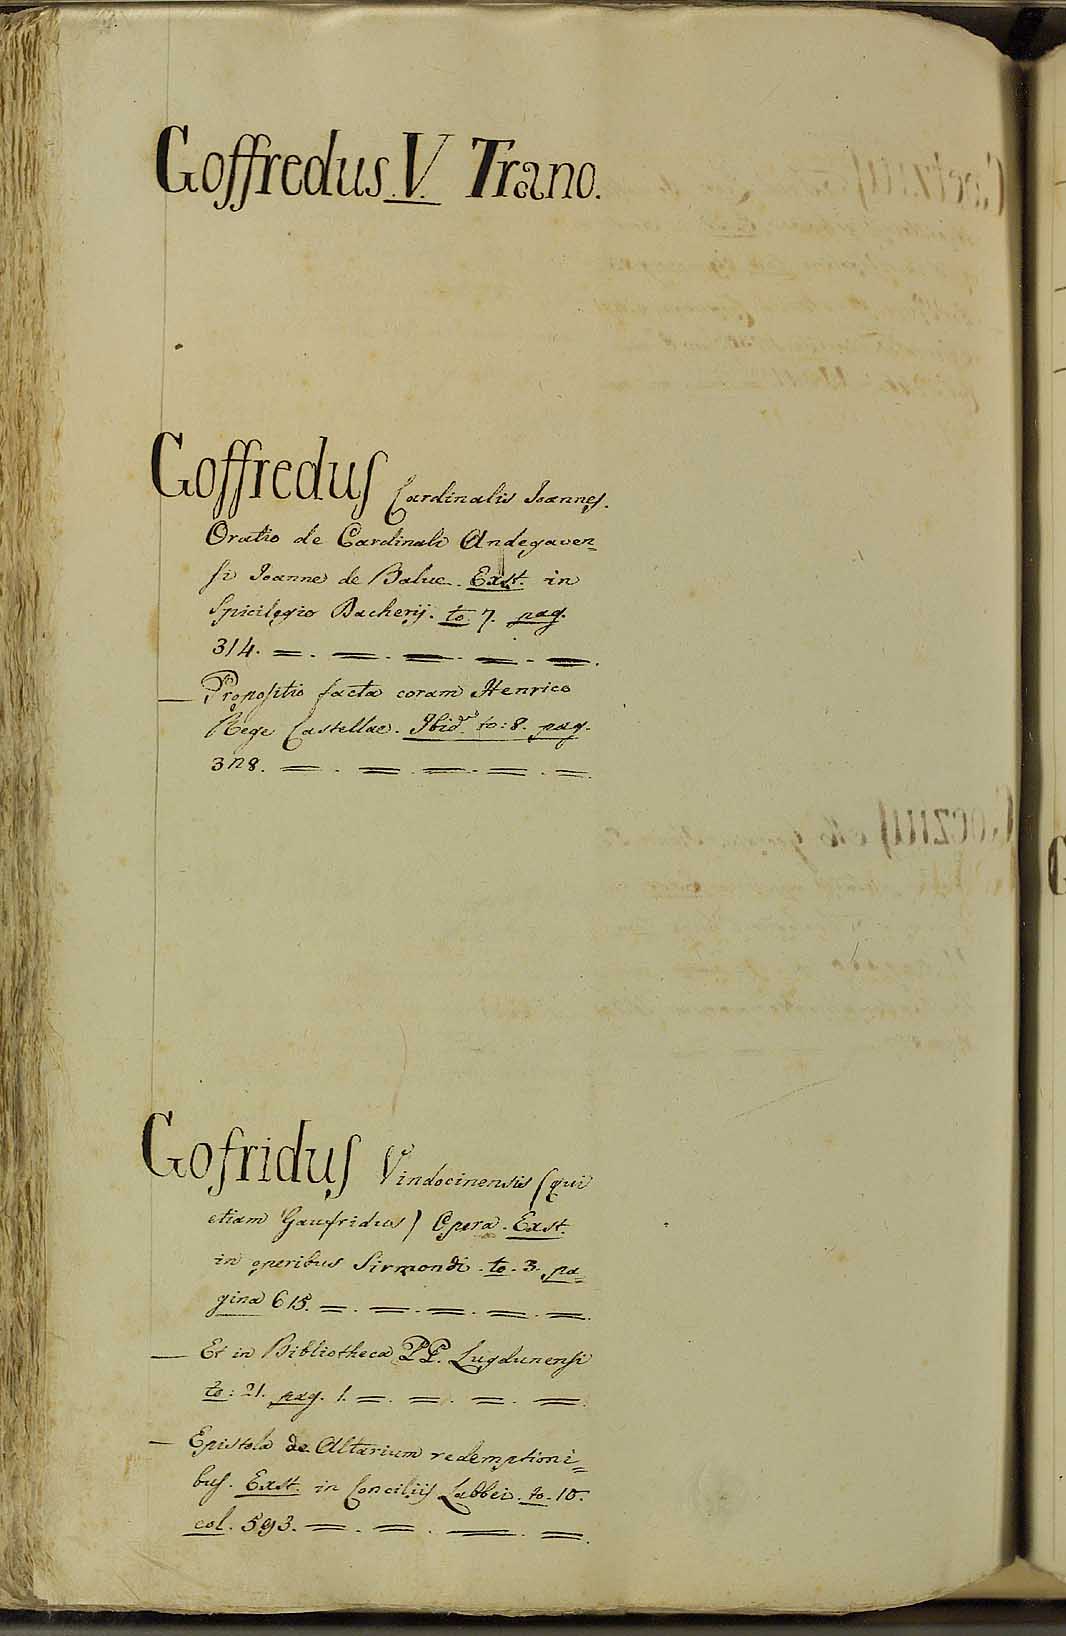 Goffredus. V. Trano.
Goffredus Cardinalis Joannes.
Oratio de Cardinali Andegaven=
si Joanne de Balue. Exst. in
Spicilegio Dacherij. to 7. pag.
314.
— Propositio facta coram Henrico
Rege Castellae. Ibid. to: 8. pag.
328.
Gofridus Vindocinensis (qui
etiam Gaufridus) Opera. Exst.
in operibus Sirmondi. to. 3. pa=
gina 615.
— Et in Bibliotheca PP. Lugdunensi
to: 21. pag. 1.
— Epistola de Altarium redemptioni=
bus. Exst. in Conciliis Labbei. to. 10.
col. 593.